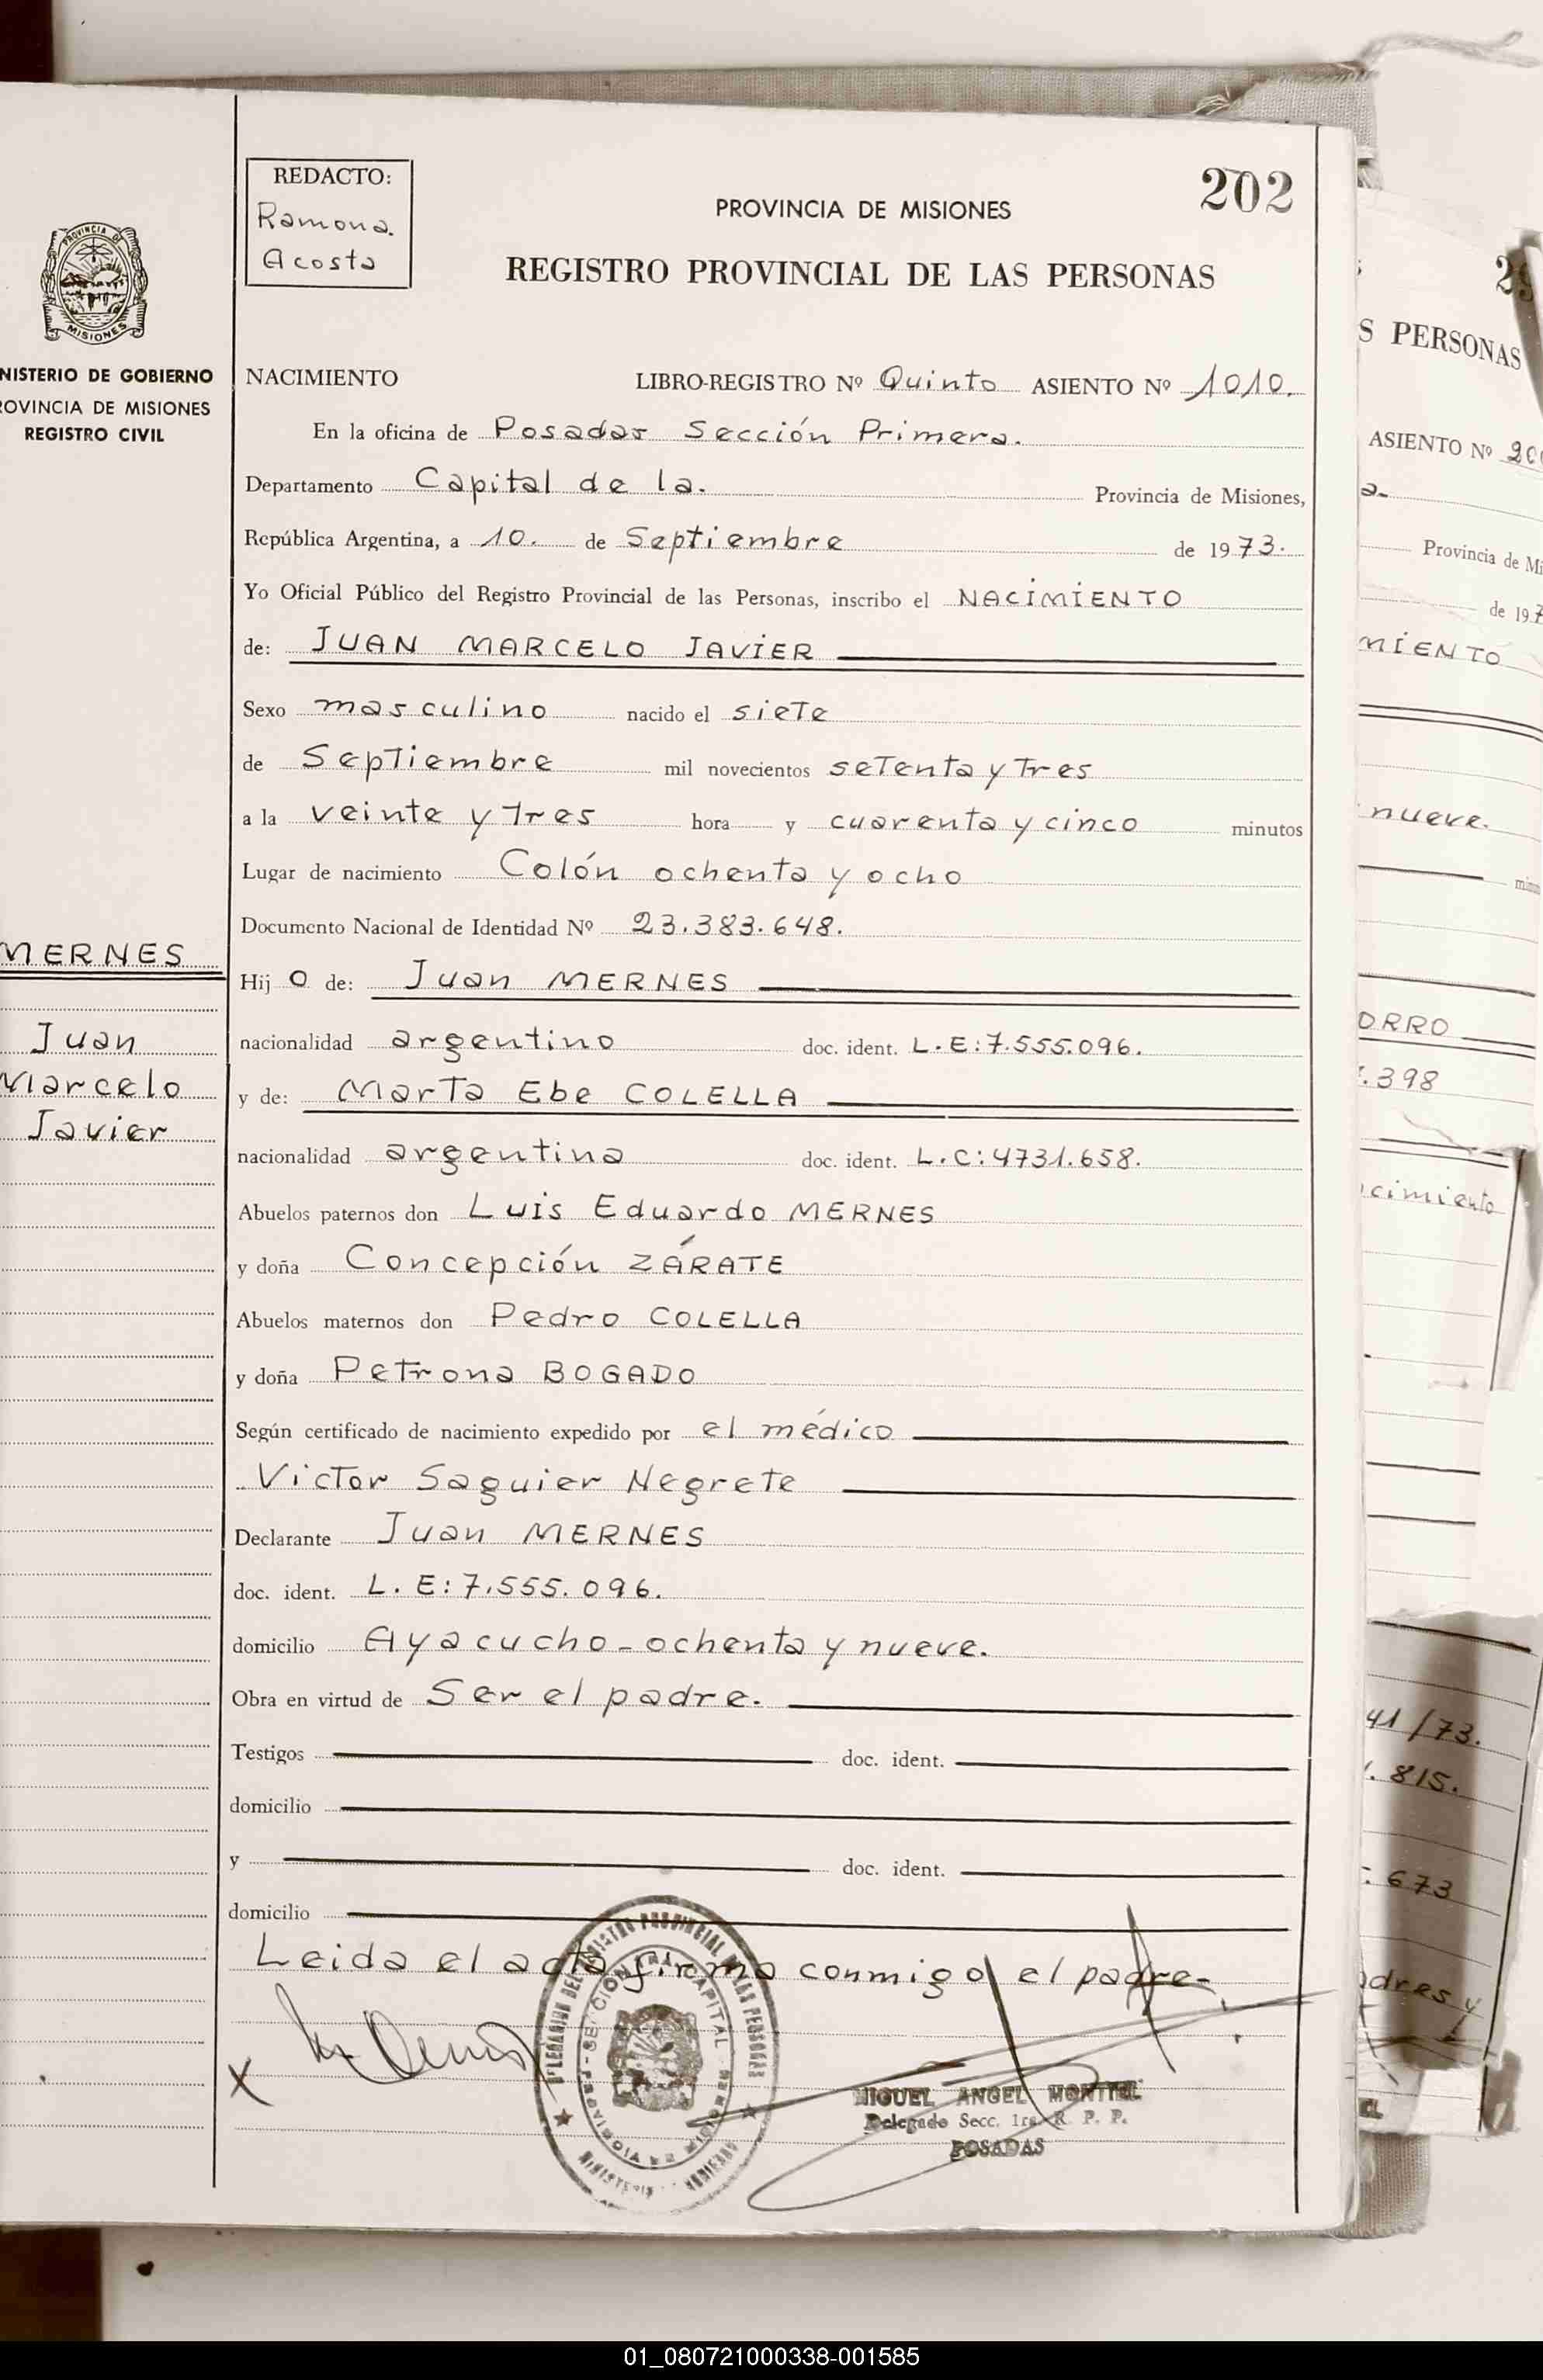 REDACTO:
Ramona.
Acosta
202
PROVINCIA DE MISIONES
REGISTRO PROVINCIAL DE LAS PERSONAS
PROVINCIA DE
MISIONES
NISTERIO DE GOBIERNO
ROVINCIA DE MISIONES
REGISTRO CIVIL
MERNES
Juan
Marcelo
Javier
NACIMIENTO LIBRO-REGISTRO Nº Quinto ASIENTO Nº 1010.
En la oficina de Posadas Sección Primera.
Departamento Capital de la. Provincia de Misiones,
República Argentina, a 10. de Septiembre de 1973.
Yo Oficial Público del Registro Provincial de las Personas, inscribo el NACIMIENTO
de: JUAN MARCELO JAVIER
Sexo masculino nacido el siete
de Septiembre mil novecientos setenta y tres
a la veinte y tres hora y cuarenta y cinco minutos
Lugar de nacimiento Colón ochenta y ocho
Documento Nacional de Identidad Nº 23.383.648.
Hij o de: Juan MERNES
nacionalidad argentino doc. ident. L.E:7.555.096.
y de: Marta Ebe COLELLA
nacionalidad argentina doc. ident. L.C:4731.658.
Abuelos paternos don Luis Eduardo MERNES
y doña Concepción ZÁRATE
Abuelos maternos don Pedro COLELLA
y doña Petrona BOGADO
Según certificado de nacimiento expedido por el médico
Victor Saguier Negrete
Declarante Juan MERNES
doc. ident. L. E:7.555.096.
domicilio Ayacucho-ochenta y nueve.
Obra en virtud de Ser el padre.
Testigos doc. ident.
domicilio
y doc. ident.
domicilio
Leida el acta firma conmigo el padre-
X
MIGUEL ANGEL MONTIEL
Delegado Secc. 1ra. R. P. P.
POSADAS
S PERSONAS
ASIENTO Nº
Provincia de Mi
de 197
MIENTO
nueve.
ORRO
.398
cimiento
41/73.
.815.
.673
adres y
01_080721000338-001585